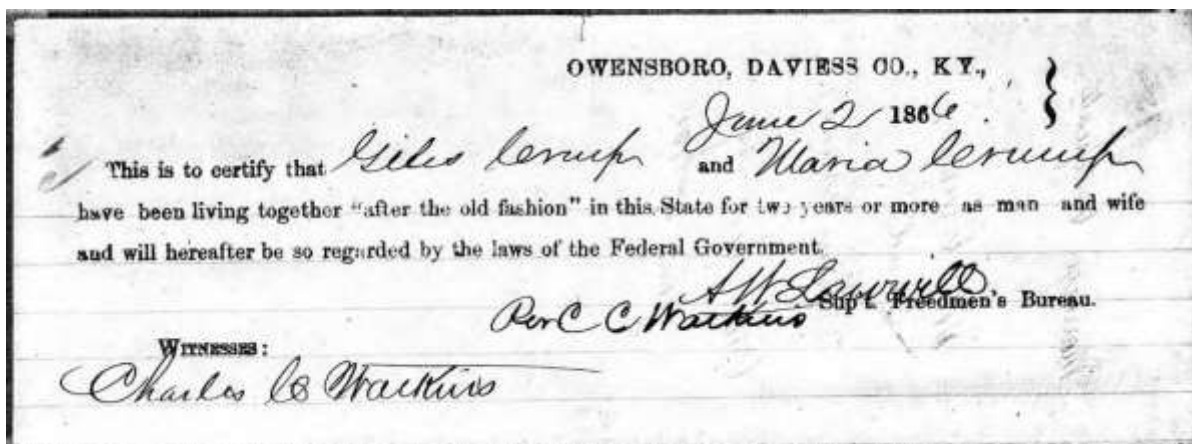 OWENSBORO, DAVIESS CO., KY.,
June 2 1866.
This is to certify that Giles Crump and Maria Crump
have been living together "after the old fashion" in this State for two years or more as man and wife
and will hereafter be so regarded by the laws of the Federal Government.
A W
Sup't. Freedmen's Bureau.
Rev C C Watkins
WITNESSES:
Charles C Watkins